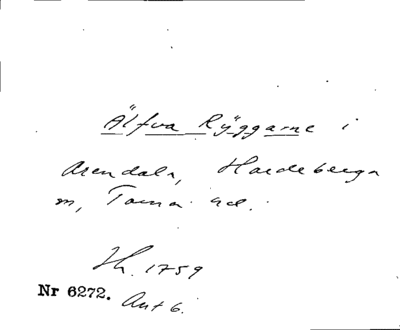 Älfva Ryggarne i
Arendala, Hardeberga
sn, Torna hd.
Hh. 1759
Nr 6272. Ant 6.